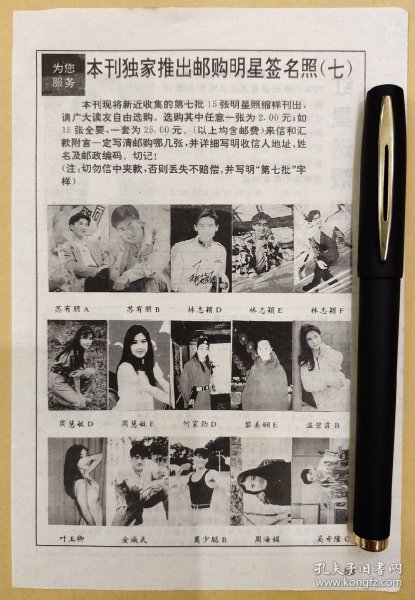 为您
服务
本刊独家推出邮购明星签名照(七)
本刊现将新近收集的第七批15张明星照缩样刊出,
请广大读友自由选购。选购其中任意一张为2.00元;如
15张全要,一套为25.00元。(以上均含邮费)来信和汇
款附言一定写清邮购哪几张,并详细写明收信人地址、姓
名及邮政编码。切记!
(注:切勿信中夹款,否则丢失不赔偿。并写明“第七批”字
样)
苏有朋A 苏有朋B 林志颖D 林志颖E 林志颖F
周慧敏D 周慧敏E 何家劲D 黎美娴E 温碧霞B
叶玉卿 金城武 莫少聪B 周海媚 吴奇隆C
63
孔夫子旧书网
www.kongfz.com